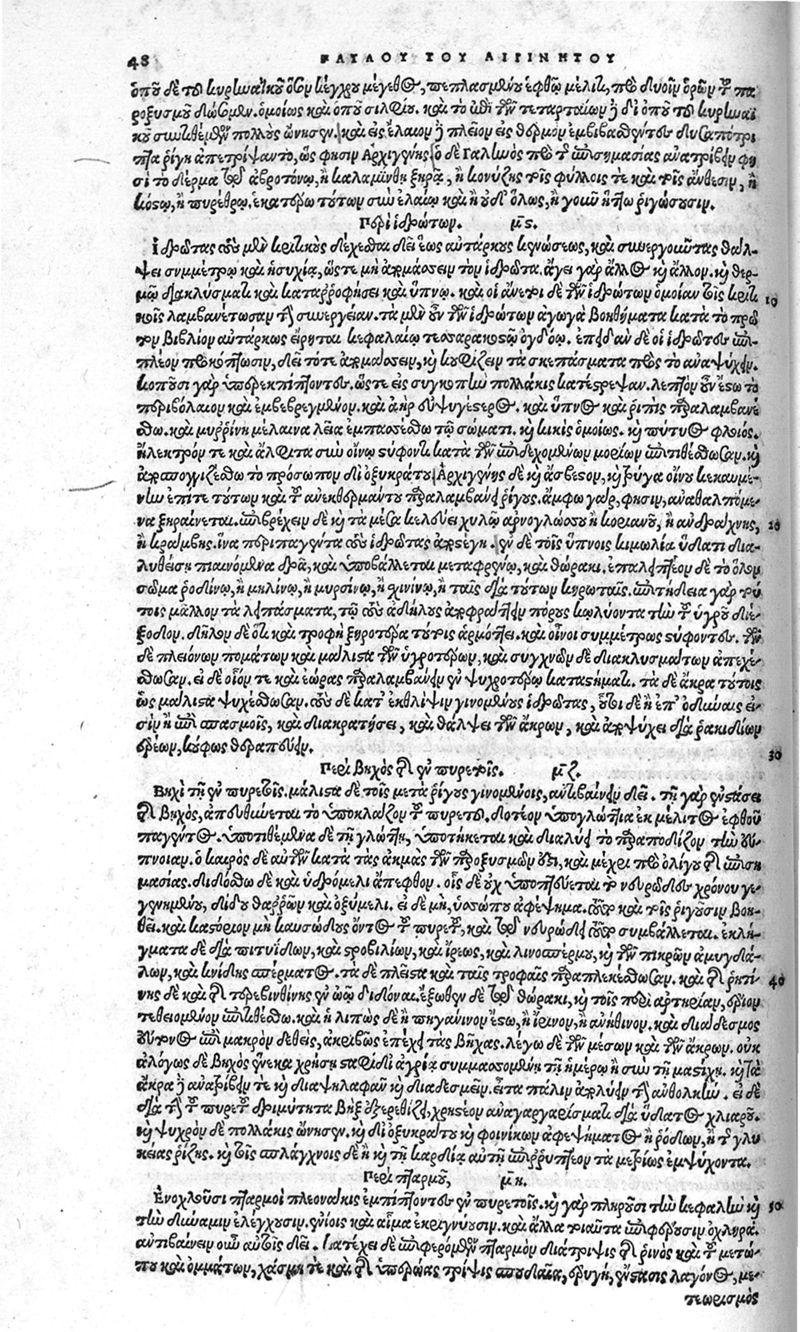 48 ΠΑΥΛΟΥ ΤΟΥ ΑΙΓΙΝΗΤΟΥ
ὀποῦ δὲ τοῦ κυρηναϊκοῦ ὅσον κέγχρου μέγεθος, πεπλασμένου ἑφθῷ μέλιτι, πρὸ δυοῖν ὡρῶν τοῦ πα
ροξυσμοῦ δίδομεν. ὁμοίως καὶ ὀποῦ σιλφίου. καὶ τὸ ἐπὶ τῶν τεταρταίων ἢ δι' ὀποῦ τοῦ κυρηναϊ
κοῦ συντιθέμενον πολλοὺς ὤνησεν. καὶ εἰς ἔλαιον ἢ πλέον εἰς θερμὸν ἐμβιβασθέντες
ῥίγη ἀπετρίψαντο, ὥς φησιν Ἀρχιγένης ὁ δὲ Γαληνὸς πρὸ τῆς ἐπισημασίας ἀνατρίβειν φη
σὶ τὸ δέρμα τῷ ἀβροτόνῳ, ἢ καλαμίνθῃ ξηρᾷ, ἢ κονύζης τοῖς φύλλοις τε καὶ τοῖς ἄνθεσιν, ἢ
κόστῳ, ἢ πυρέθρῳ. ἑκατέρῳ τούτων σὺν ἐλαίῳ καὶ ἢ οὐδ' ὅλως, ἢ γοῦν ἧττον ῥιγώσουσιν.
Περὶ ἱδρώτων. μϛ.
Ἱδρῶτας τοὺς μὲν κριτικοὺς δέχεσθαι δεῖ ἕως αὐτάρκους κενώσεως, καὶ συνεργοῦντας θάλ-
ψει συμμέτρῳ καὶ ἡσυχίᾳ, ὥστε μὴ ἀπομάσσειν τὸν ἱδρῶτα. ἄγει γὰρ ἄλλος καὶ ἄλλον. καὶ θερ-
μῷ διακλύσματι καὶ καταρροφήσει καὶ ὕπνῳ. καὶ οἱ ἄνετοι δὲ τῶν ἱδρώτων ὁμοίαν τοῖς κριτι 10
κοῖς λαμβανέτωσαν τὴν συνεργείαν. τὰ μὲν οὖν τῶν ἱδρώτων ἀγωγὰ βοηθήματα κατὰ τὸ πρῶ
τον βιβλίον αὐτάρκως εἴρηται κεφαλαίῳ τεσσαρακοστῷ ὀγδόῳ. ἐπειδὰν δὲ οἱ ἱδρῶτες ἐπὶ
πλέον προκόπτωσιν, δεῖ τότε ἀπομάσσειν, καὶ κουφίζειν τὰ σκεπάσματα πρὸς τὸ ἀναψύχειν.
κόπτουσι γὰρ ὑπερεκπίπτοντες. ὥστε εἰς συγκοπὴν πολλάκις κατέστρεψαν. λεπτὸν οὖν ἔστω τὸ
περιβόλαιον καὶ ἐμβεβρεγμένον. καὶ ἀὴρ εὐψυγέστερος. καὶ ὕπνος καὶ ῥιπὶς παραλαμβανέ
σθω. καὶ μυρσίνη μέλαινα λεία ἐμπασσέσθω τῷ σώματι. καὶ κικὶς ὁμοίως. καὶ πίτυος φλοιός.
ἤλεκτρόν τε καὶ ἄλφιτα σὺν οἴνῳ στύφοντι κατὰ τῶν ἐπιδεχομένων μορίων ἐπιτιθέσθωσαν. καὶ
ἀποσπογγιζέσθω τὸ πρόσωπον δι' ὀξυκράτου Ἀρχιγένης δὲ καὶ ἄσβεστον, καὶ τρύγα οἴνου κεκαυμέ-
νην ἐπί τε τούτων καὶ τοῦ ἀνεκθερμάντου παραλαμβάνει ῥίγους. ἄμφω γάρ, φησιν, ἀναθαλπόμε-
να ξηραίνεται. ἐπιβρέχειν δὲ καὶ τὰ μέζεα κελεύει χυλῷ ἀρνογλώσσου ἢ κοριάνου, ἢ ἀνδράχνης, 20
ἢ κράμβης. ἵνα περιπαγέντα τοὺς ἱδρῶτας ἀποστέγῃ. ἐν δὲ τοῖς ὕπνοις κιμωλία ὕδατι δια-
λυθεῖσα πιαινόμενα δρᾷ, καὶ ὑποβάλλεται μεταφρένῳ, καὶ θώρακι. ἐπαλειπτέον δὲ τὸ ὅλον
σῶμα ῥοδίνῳ, ἢ μηλίνῳ, ἢ μυρσίνῳ, ἢ σχινίνῳ, ἢ ταῖς διὰ τούτων κηρωταῖς. ἐπιτήδεια γὰρ τού
τοις μᾶλλον τὰ λιπάσματα, τῷ τοὺς ἀδήλους ἀποφράττειν πόρους κωλύοντα τὴν τοῦ ὑγροῦ διέ-
ξοδον. δῆλον δὲ ὅτι καὶ τροφὴ ξηροτέρα τούτοις ἁρμόττει. καὶ οἶνοι συμμέτρως στύφοντες. τῶν
δὲ πλειόνων πομάτων καὶ μάλιστα τῶν ὑγροτέρων, καὶ συχνῶν δὲ διακλυσμάτων ἀπεχέ-
σθωσαν. εἰ δὲ οἷόν τε καὶ ἑώρας παραλαμβάνειν ἐν ψυχροτέρῳ καταστήματι. τὰ δὲ ἄκρα τούτοις
ὡς μάλιστα ψυχέσθωσαν. τοὺς δὲ κατ' ἔκθλιψιν γινομένους ἱδρῶτας, οὗτοι δὲ ἢ ἐπ' ὀδύναις εἰ-
σὶν ἢ ἐπὶ σπασμοῖς, καὶ διακρατήσει, καὶ θάλψει τῶν ἄκρων, καὶ ἀποψύχει διὰ ῥακιδίων
στερεῶν, κούφως θεραπεύειν. 30
Περὶ βηχὸς τῆς ἐν πυρετοῖς. μζ.
Βηχὶ τῇ ἐν πυρετοῖς. μάλιστα δὲ τοῖς μετὰ ῥίγους γινομένοις, ἀντιβαίνειν δεῖ. τῇ γὰρ ἐνστάσει
τῆς βηχός, ἀπευθύνεται τὸ ὑποκλάζον τοῦ πυρετοῦ. δοτέον ὑπογλώττια ἐκ μέλιτος ἑφθοῦ
παγέντος. ὑποτιθέμενα δὲ τῇ γλώττῃ, ὑποτήκεται καὶ διαλύει τὸ παραποδίζον τὴν εὔ-
πνοιαν. ὁ καιρὸς δὲ αὐτῶν κατὰ τὰς ἀκμὰς τῶν παροξυσμῶν ἐστι, καὶ μέχρι πρὸ ὀλίγου τῆς ἐπιση-
μασίας. διδόσθω δὲ καὶ ὑδρόμελι ἄπεφθον. οἷς δὲ οὐχ ὑποπτεύεται τὸ νευρῶδες χρόνου γε-
γενημένου, δίδου θαρρῶν καὶ ὀξύμελι. εἰ δὲ μή, ὑσσώπου ἀφέψημα. τοῦτο καὶ τοῖς ῥιγοῦσιν βοη-
θεῖ. καὶ καστόριον μὴ καυσώδους ὄντος τοῦ πυρετοῦ, καὶ τῷ νευρώδει τοῦτο συμβάλλεται. ἐκλή-
γματα δὲ διὰ πιτυΐδων, καὶ στροβιλίων, καὶ ἴρεως, καὶ λινοσπέρμου, καὶ τῶν πικρῶν ἀμυγδά-
λων, καὶ κνίδης σπέρματος. τὰ δὲ πλεῖστα καὶ ταῖς τροφαῖς παραπλεκέσθωσαν. καὶ τῆς ῥητί- 40
νης δὲ καὶ τῆς τερεβινθίνης ἐν ὠῷ διδόναι. ἔξωθεν δὲ τῷ θώρακι, καὶ τοῖς περὶ ἀρτηρίαν, ἔριον
τεθειωμένον ἐπιτιθέσθω. καὶ ἡ λιπὸς δὲ ἢ πηγάνινον ἔστω, ἢ ἴρινον, ἢ ἀνήθινον. καὶ διάδεσμος
εὔτονος ἐπὶ μακρὸν δεθείς, ἀκριβῶς ἐπέχει τὰς βῆχας. λέγω δὲ τῶν μέσων καὶ τῶν ἄκρων. οὐκ
ἀλόγως δὲ βηχὸς ἕνεκα χρήσῃ σταφίδι ἀγρίᾳ συμμασσομένῃ τῇ ἡμέρῳ ἢ σὺν τῇ μαστίχῃ. καὶ τὰ
ἄκρα ἢ ἀνατρίβειν τε καὶ διαψηλαφᾶν καὶ διαδεσμεῖν. εἶτα πάλιν ἀπολύειν τὴν ἀνθολκήν. εἰ δὲ
διὰ τὴν τοῦ πυρετοῦ δριμύτητα βὴξ ἐξερεθίζει, χρηστέον ἀναγαργαρίσματι διὰ ὕδατος χλιαροῦ.
καὶ ψυχρὸν δὲ πολλάκις ὤνησεν. καὶ δι' ὀξυκράτου καὶ φοινίκων ἀφεψήματος ἢ ῥόδων, ἢ τῆς γλυ
κείας ῥίζης. καὶ τοῖς σπλάγχνοις δὲ ἢ καὶ τῇ καρδίᾳ αὐτῇ ἐπιρριπτέον τὰ μετρίως ἐμψύχοντα.
Περὶ πταρμοῦ, μη.
Ἐνοχλοῦσι πταρμοὶ πλεονάκις ἐμπίπτοντες ἐν πυρετοῖς. καὶ γὰρ πληροῦσι τὴν κεφαλὴν καὶ 50
τὴν δύναμιν ἐλέγχουσιν. ἐνίοις καὶ αἷμα ἐκρηγνύουσιν. καὶ ἄλλα τοιαῦτα ἐπιφέρουσιν ὀχληρά.
ἀντιβαίνειν οὖν αὐτοῖς δεῖ. κατέχει δὲ ἐπιφερόμενον πταρμὸν διάτριψις τῆς ῥινὸς καὶ τοῦ μετώ-
που καὶ ὀμμάτων, χάσμη τε καὶ τῆς ὑπερῴας τρίψις σπουδαία, ἐρυγή, ἔνστασις λαγόνος, με-
τεωρισμὸς